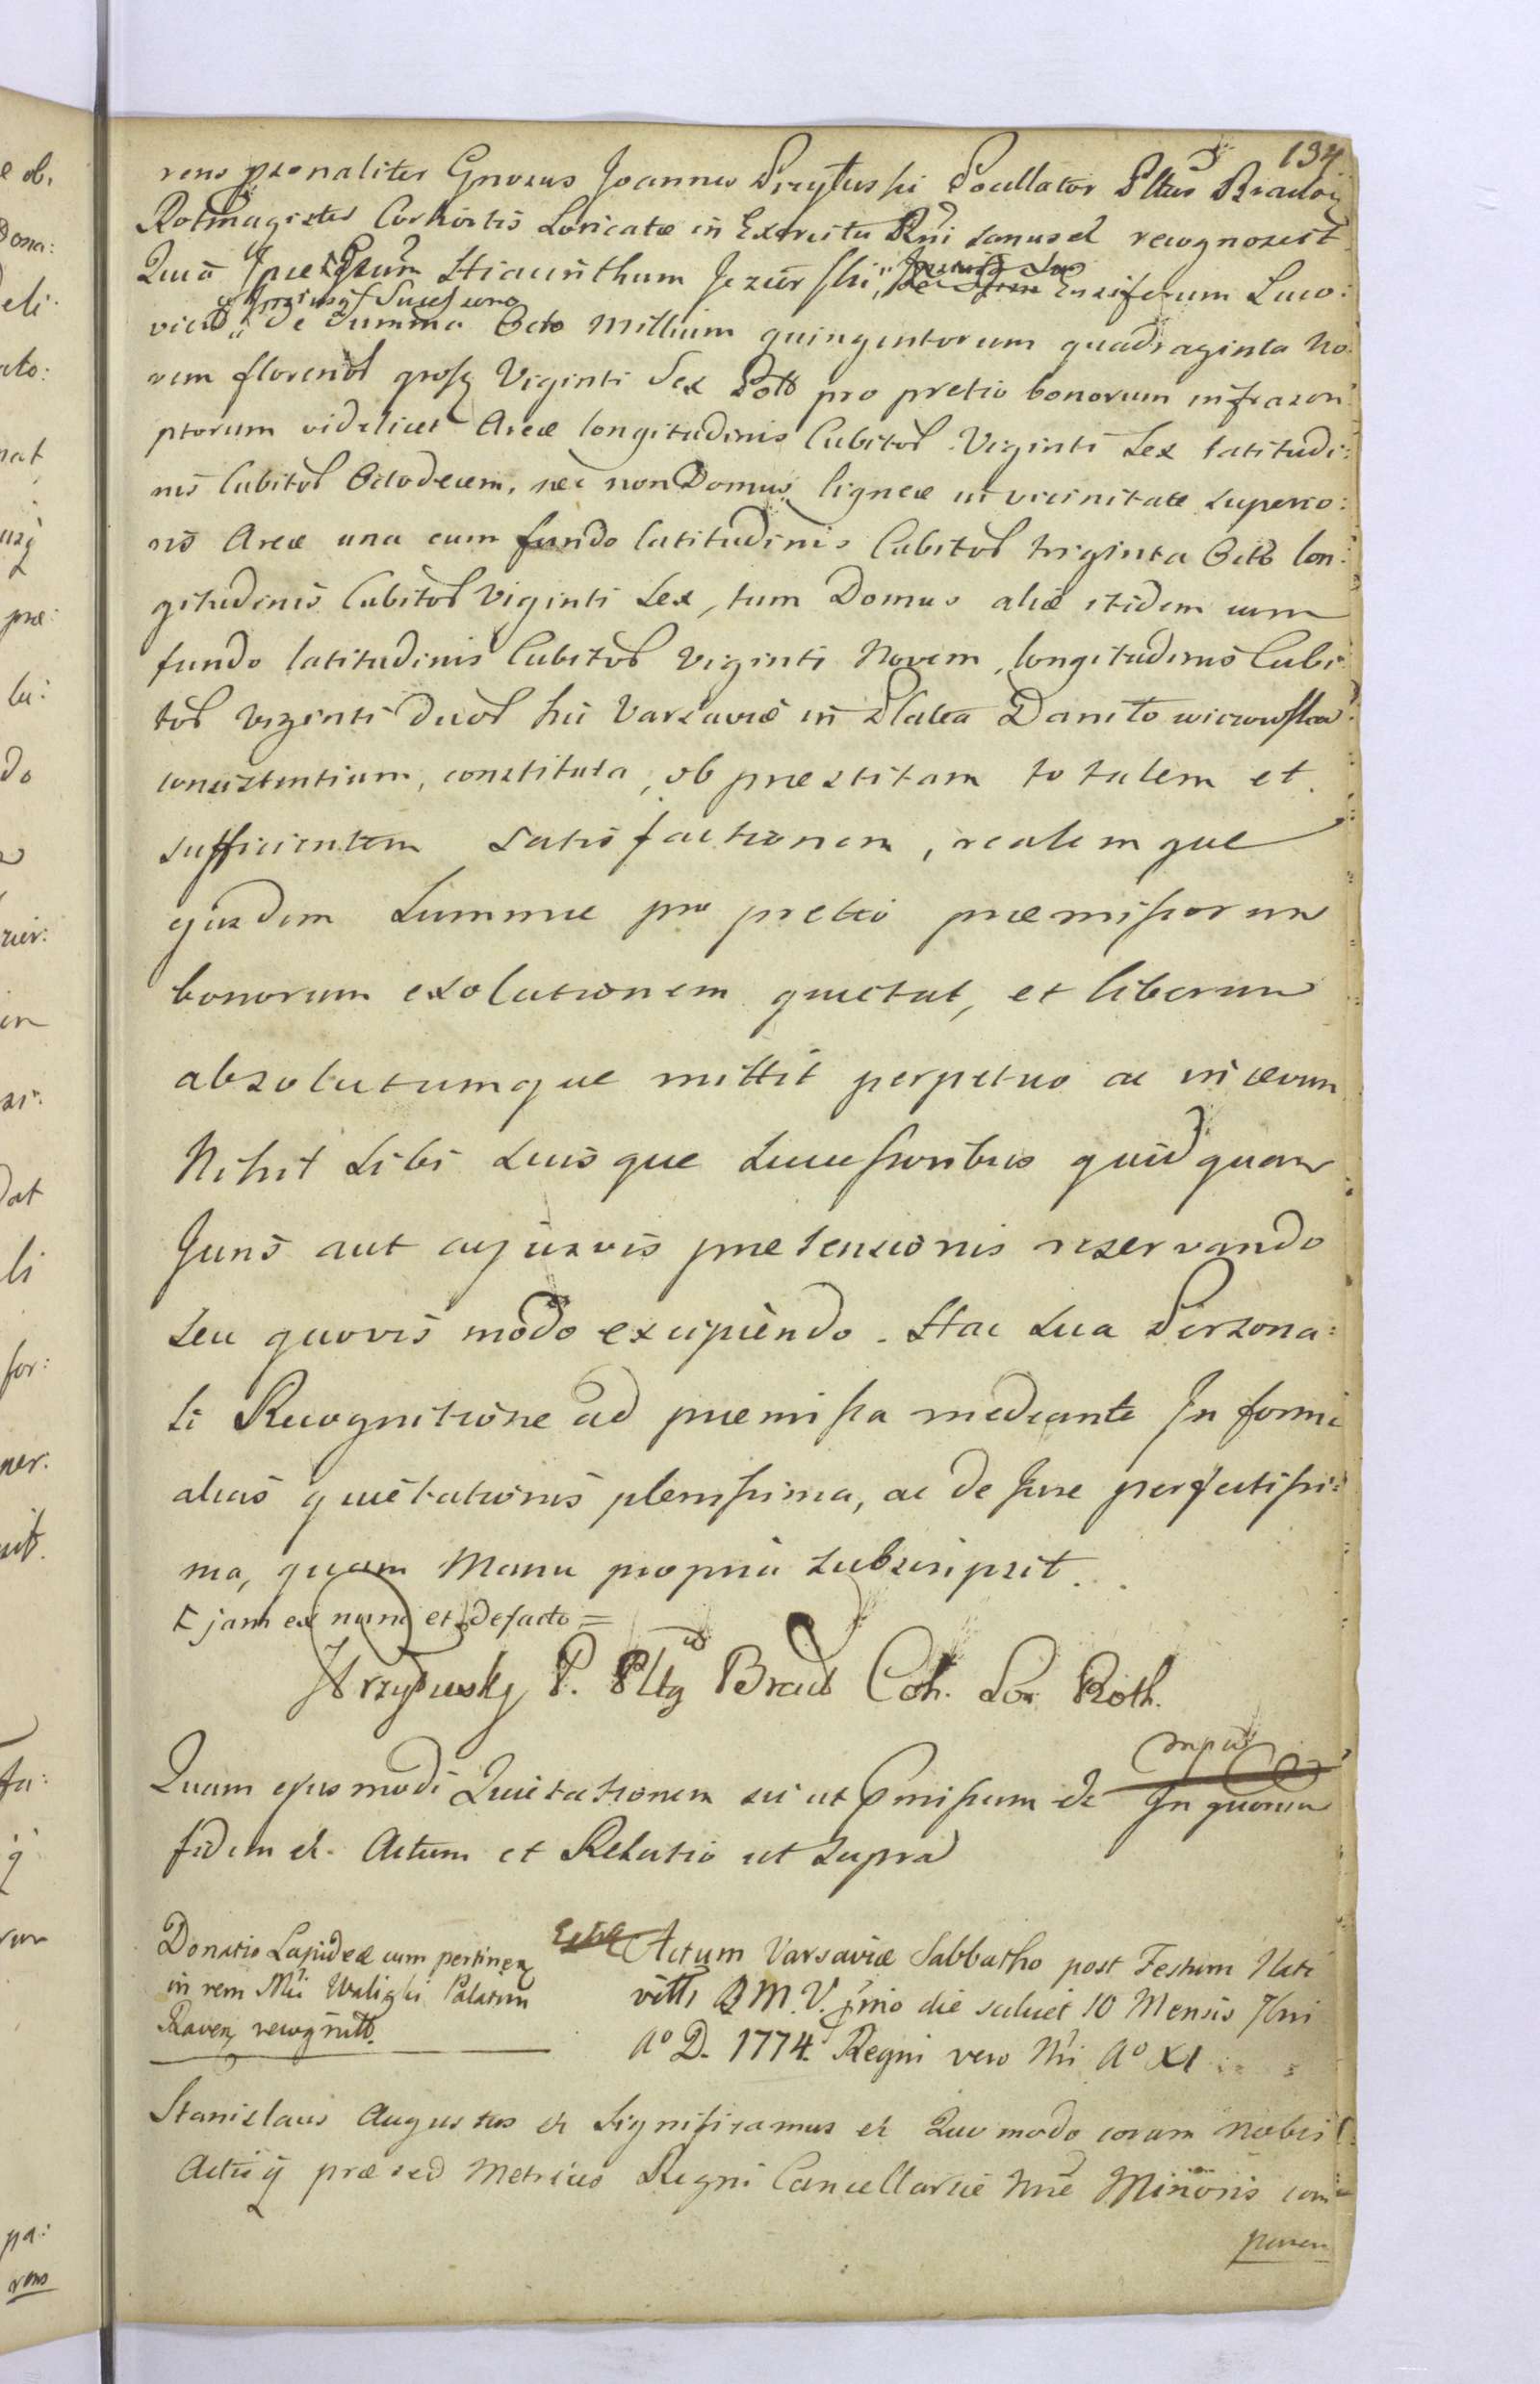 134
rens psonaliter Gnosus Joannes Pocillator Pltus Braclovi
Rotmagister Cohortis Loricatæ in Exercitu Rni sanus et recognovit
Quia Hiacinthum Jezierski, Ensiferum Luco:
Successores
vien de Summa Octo Millium quingentorum quadraginta No
vem florenor grosq Viginti Sex Polo pro pretio bonorum infrascri
ptorum videlicet Areæ longitudinis Cubitor Viginti Sex latitudi:
nis Cubitor Octodecem, nec non Domus ligneæ in vicinitate superio:
ris Areæ una cum fundo latitudinis Cubitor triginta Octo lon:
gitudinis Cubitor Viginti Sex, tum Domus aliæ itidem cum
fundo latitudinis Cubitor Viginti Novem, longitudinis Cubi
tor Viginti Duor hic Varsaviæ in Platea Daniłowiczowska
consistentium, constituta, ob præstitam totalem et
sufficientem satisfactionem, realemque
ejusdem Summæ pro pretio præmissorum
bonorum exolutionem quietat, et liberum
absolutumque mittit perpetuo ac in ævum
Nihil Sibi Suisque Successoribus quidquam
Juris aut cujusvis prætensionis reservando
seu quovis modo excipiendo. Hac Sua Persona:
li Recognitione ad præmissa mediante In forma
alias quietationis plenissima, ac de Jure perfectissi:
ma, quam Manu propria subscripsit.
jam ex nunc et de facto =
P. Pltg Brac Coh. Lor. Roth.
Quam ejusmodi Quietationem sic ut pmissum et In quorum
fidem et. Actum et Relatio ut supra
Donatio Lapideæ cum pertinen
in rem Mci Walicki Palatin
Raven recognitt.
Actum Varsaviæ Sabbatho post Festum Nati
vittis B M. V. pmo die scilicet 10 Mensis 7bris
Aº D. 1774. Regni vero Nri Aº XI
Stanislaus Augustus et Significamus et Quomodo coram Nobis
Actisq præsed Metrices Regni Cancellariæ Nræ Minoris com
paren